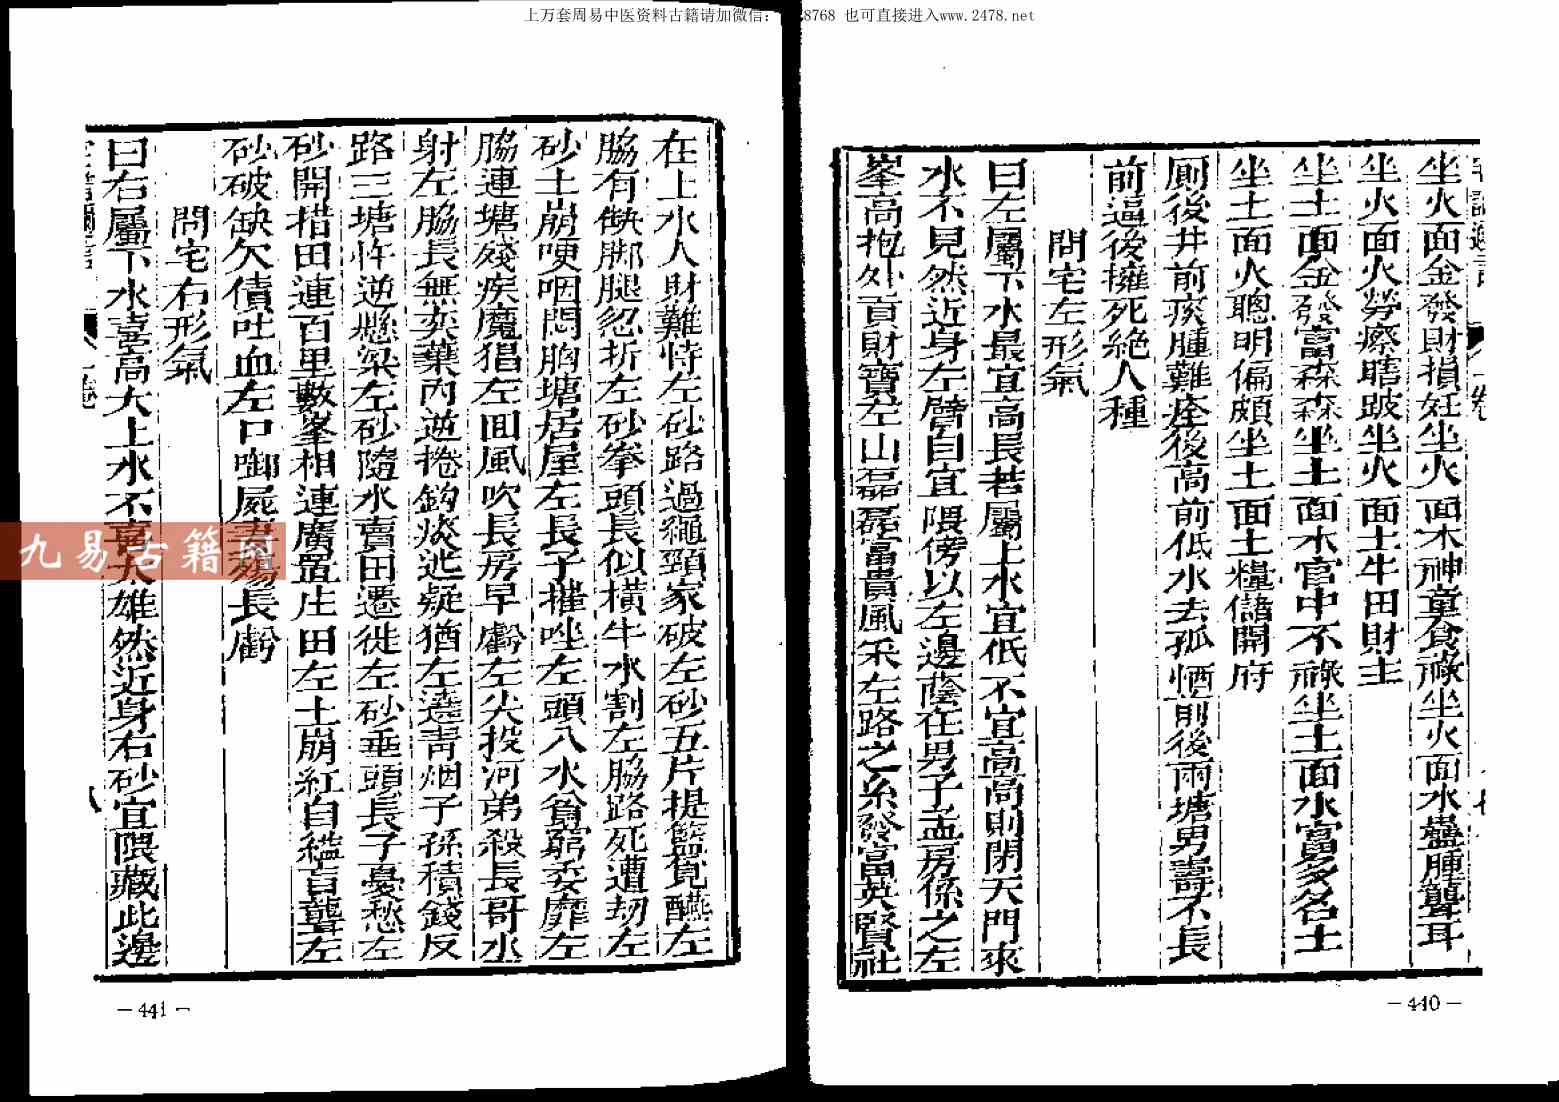 上万套周易中医资料古籍请加微信： 8768 也可直接进入www.2478.net
坐火面金發財損妊坐火面木神童食祿坐火面水蠱腫聾耳
坐火面火勞瘵瞎跛坐火面土牛田財主
坐土面金發富森森坐土面木官中不祿坐土面水富多名士
坐土面火聰明偏頗坐土面土糧儲開府
厠後井前痰腫難痊後高前低水去孤恓前後兩塘男壽不長
前逼後擁死絶人種
問宅左形氣
曰左屬下水最宜高長若屬上水宜低不宜高高則閉天門來
水不見然近身左臂自宜隈傍以左邊蔭在男子孟房係之左
峯高抱外貢財寶左山磊磊富貴風采左路之糸發富英賢社
－440－
在上水人財難恃左砂路過繩頸家破左砂五片提籃覓醼左
脇有缺脚腿忽折左砂拳頭長似橫牛水割左脇路死遭刼左
砂土崩哽咽悶胸塘居屋左長子摧唑左頭八水貧窮委靡左
脇連塘殘疾魔猖左囬風吹長房早虧左尖投河弟殺長哥水
射左脇長無奕葉内逆捲鈎痰迯疑猶左遶青烟子孫積錢反
路三塘忤逆懸梁左砂隨水賣田遷徙左砂垂頭長子憂愁左
砂開措田連百里數峯相連廣置庄田左土崩紅自縊盲聾左
砂破缺欠債吐血左口啣屍妻殤長虧
問宅右形氣
曰右屬下水喜高大上水不喜太雄然近身右砂宜隈藏此邊
八
－441－
九易古籍